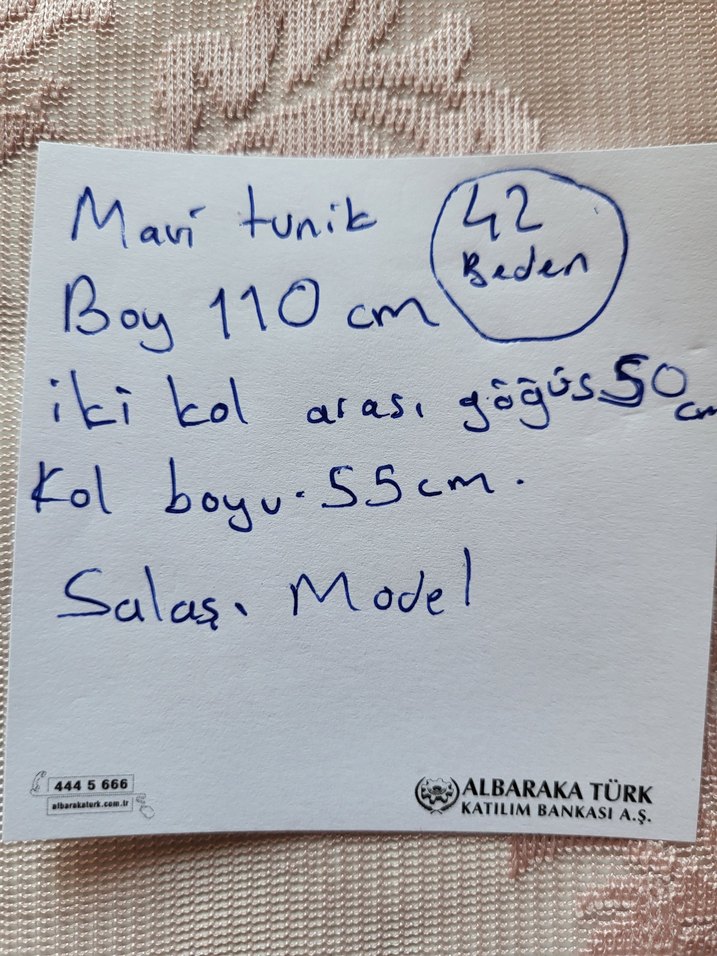 Mavi tunik
42
Beden
Boy 110 cm
iki kol arası göğüs 50 cm
Kol boyu. 55 cm.
Salaş. Model
444 5 666
albarakaturk.com.tr
ALBARAKA TÜRK
KATILIM BANKASI A.Ş.